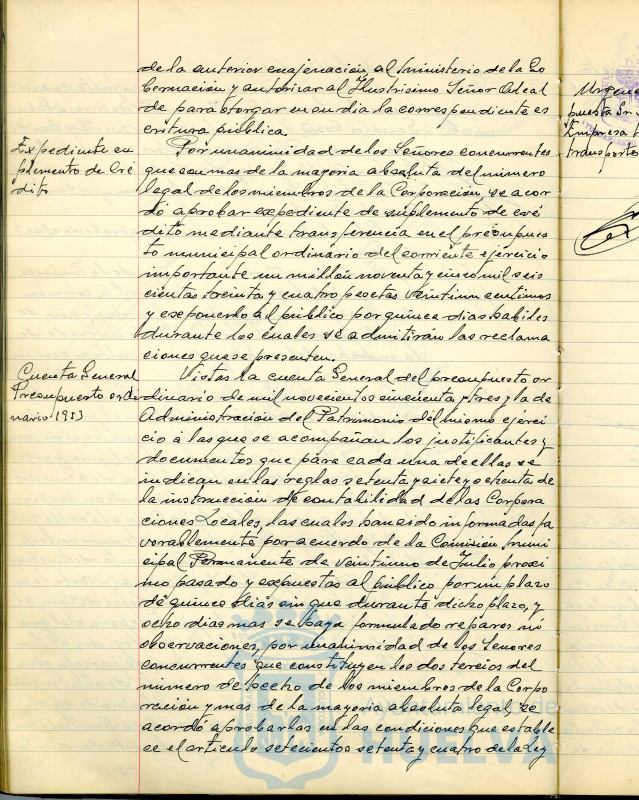 de la anterior enajenación, al Ministerio de la Go
bernación y autorizar al Ilustrísimo Señor Alcal
de para otorgar en su día la correspondiente es
critura pública.
Expediente su
plemento de Cré
dito
Por unanimidad de los Señores concurrentes
que son mas de la mayoria absoluta del número
legal de los miembros de la Corporación, se acor
dó aprobar expediente de suplemento de cré
dito mediante transferencia en el presupues
to municipal ordinario del corriente ejercicio
importante un millón noventa y cinco mil seis
cientas treinta y cuatro pesetas veintiun centimos
y exponerlo al público por quince dias habiles
durante los cuales se admitirán las reclama
ciones que se presenten.
Cuenta General
Presupuesto ordi
nario 1953
Vistas la cuenta General del presupuesto or
dinario de mil novecientos cincuenta y tres y la de
Administración del Patrimonio del mismo ejerci
cio a las que se acompañan los justificantes y
documentos que para cada una de ellas se
indican en las reglas setenta y siete y ochenta de
la instrucción de contabilidad de las Corpora
ciones Locales, las cuales han sido informadas fa
vorablemente por acuerdo de la Comisión Muni
cipal Permanente de veintiuno de Julio proxi
mo pasado y expuestas al público por un plazo
de quince dias sin que durante dicho plazo, y
ocho dias mas se haya formulado reparos ni
observaciones, por unanimidad de los Señores
concurrentes que constituyen los dos tercios del
número de hecho de los miembros de la Corpo
ración y mas de la mayoria absoluta legal, se
acordó aprobarlas en las condiciones que estable
ce el artículo setecientos setenta y cuatro de la Ley
Urgenc
puesta Sr.
Empresa
transporte
Ayuntamiento de
HUELVA